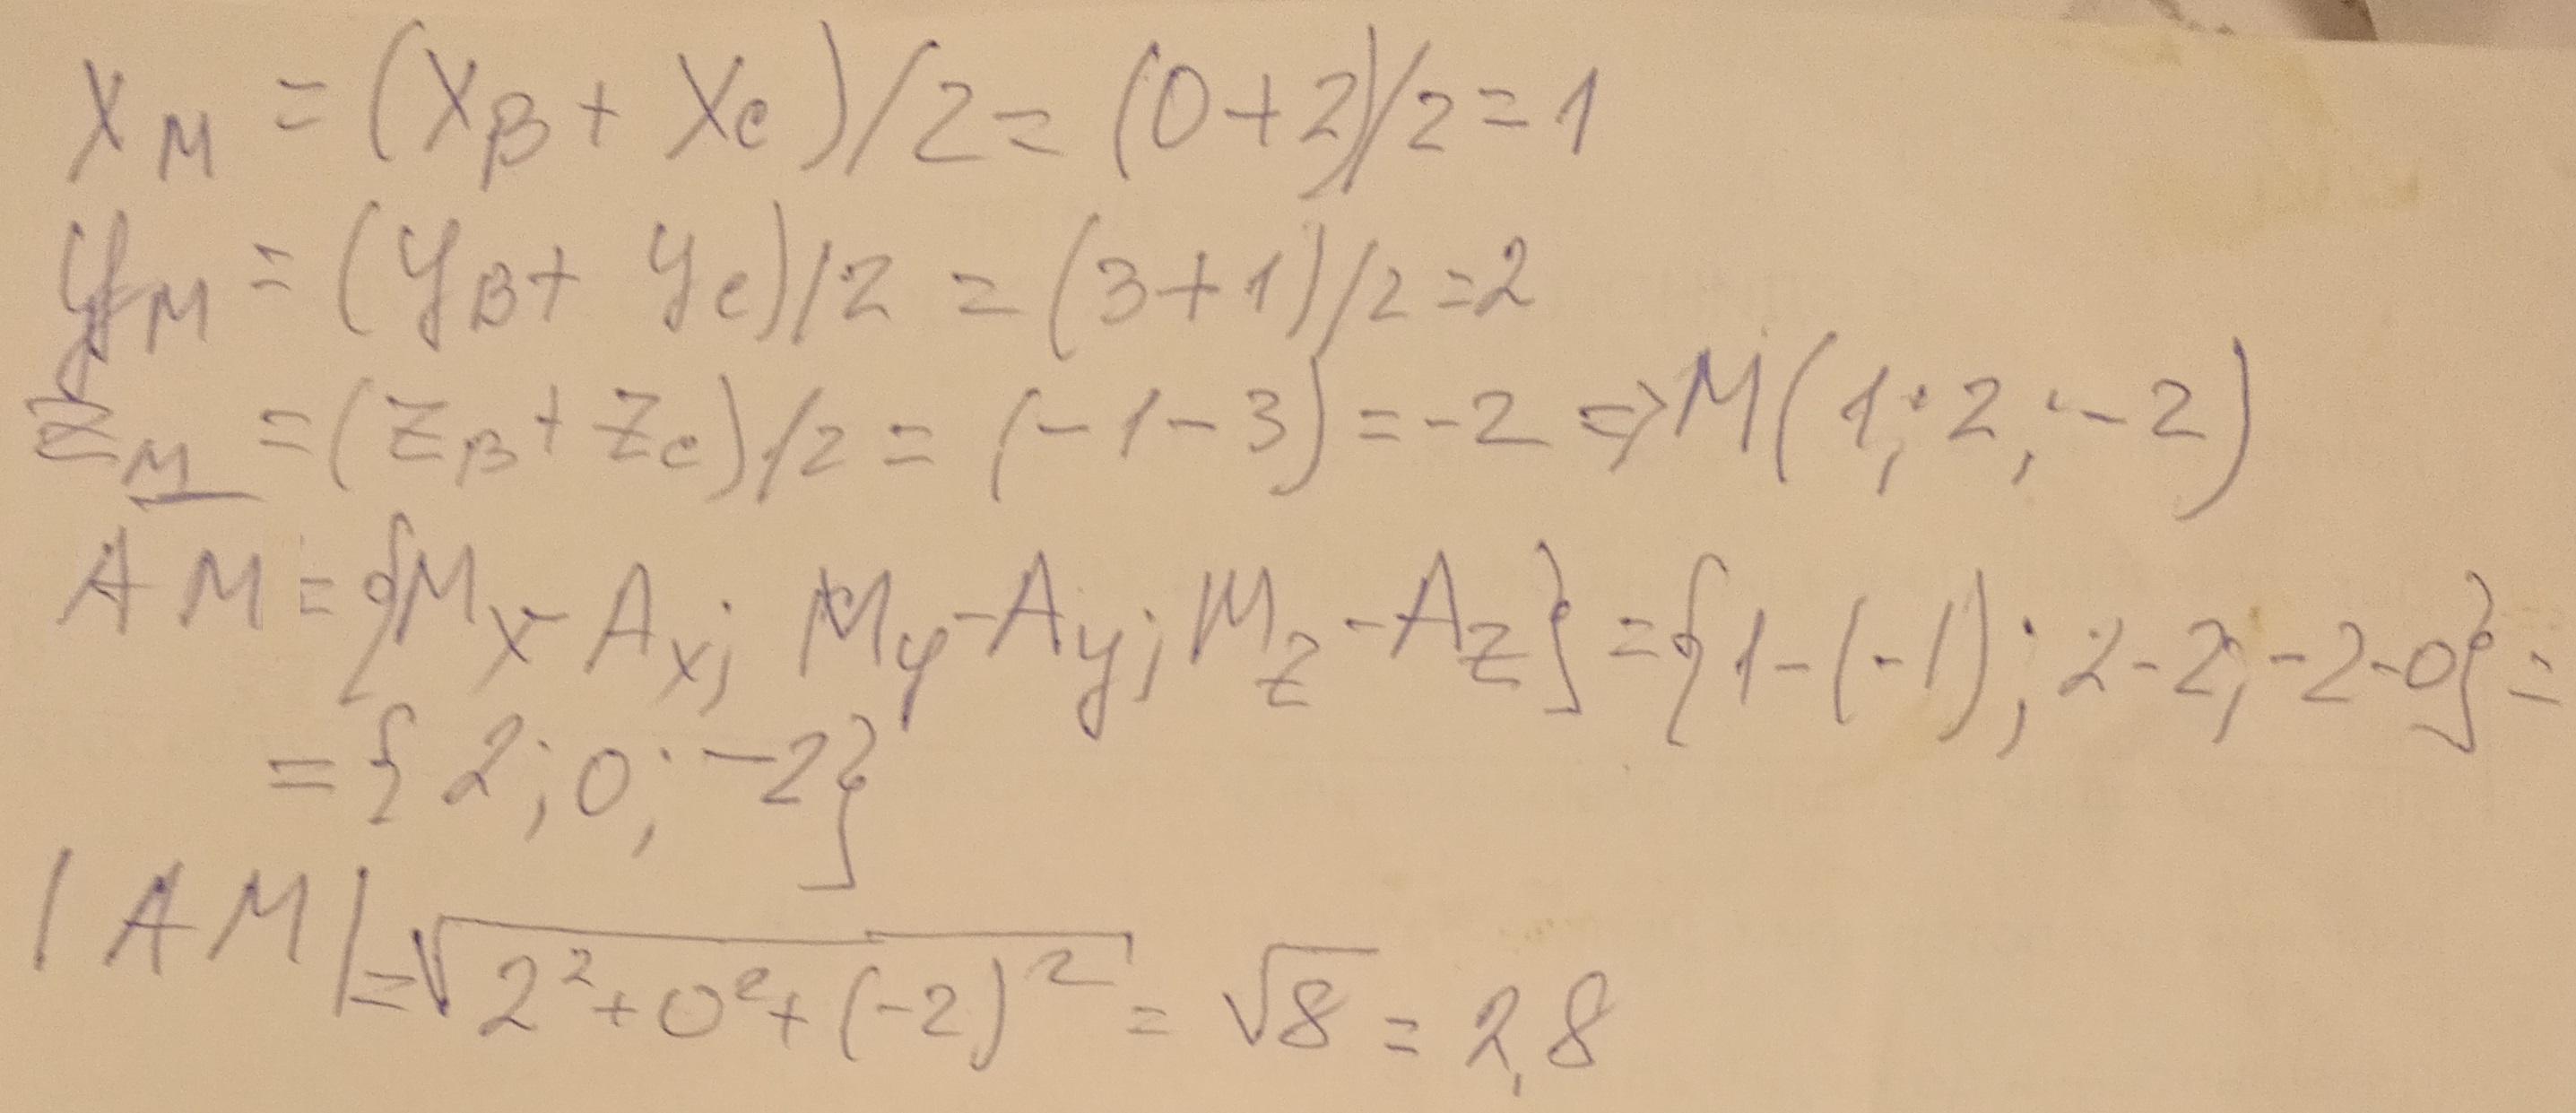 x_M = (x_B + x_C)/2 = (0+2)/2 = 1
y_M = (y_B + y_C)/2 = (3+1)/2 = 2
z_M = (z_B + z_C)/2 = (-1-3) = -2 => M(1; 2; -2)
AM = {M_x - A_x; M_y - A_y; M_z - A_z} = {1-(-1); 2-2; -2-0} =
= {2; 0; -2}
|AM| = √(2² + 0² + (-2)²) = √8 = 2,8